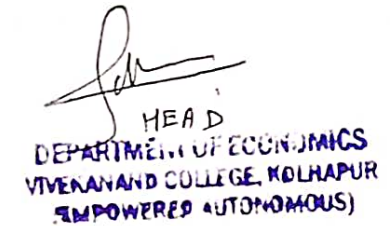 HEAD
DEPARTMENT OF ECONOMICS
VIVEKANAND COLLEGE, KOLHAPUR
(EMPOWERED AUTONOMOUS)